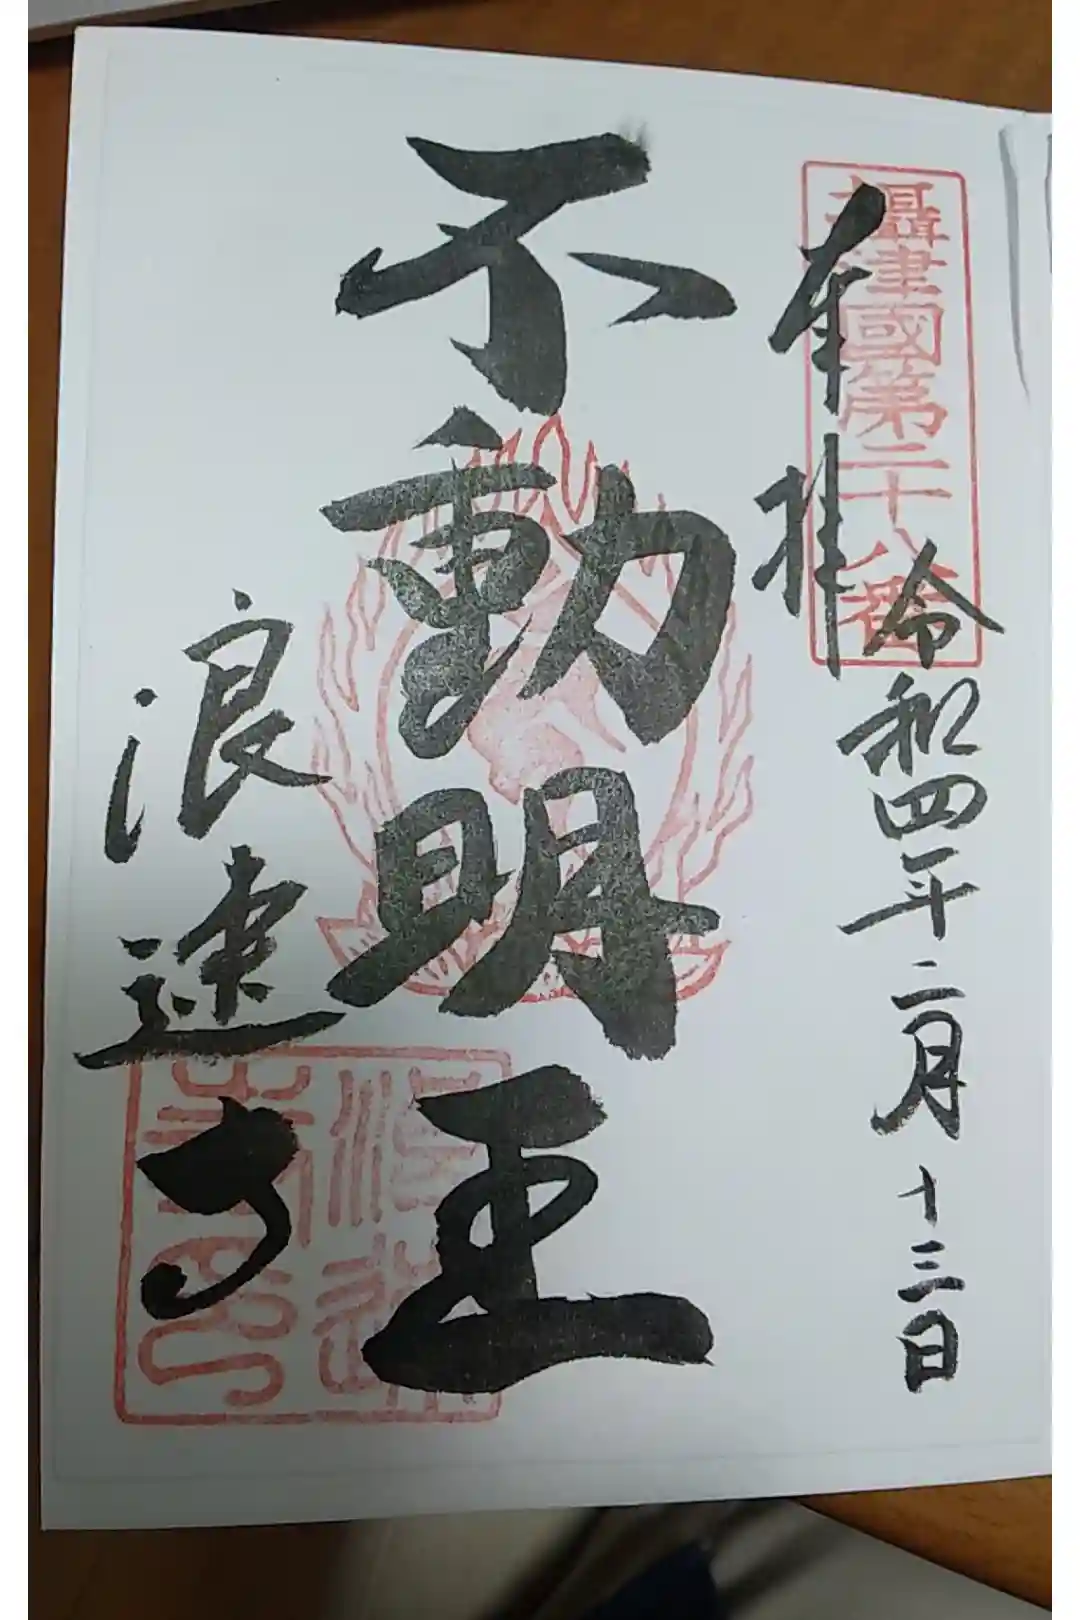 攝津國第二十八番
奉拝
令和四年二月十三日
不動明王
浪速寺